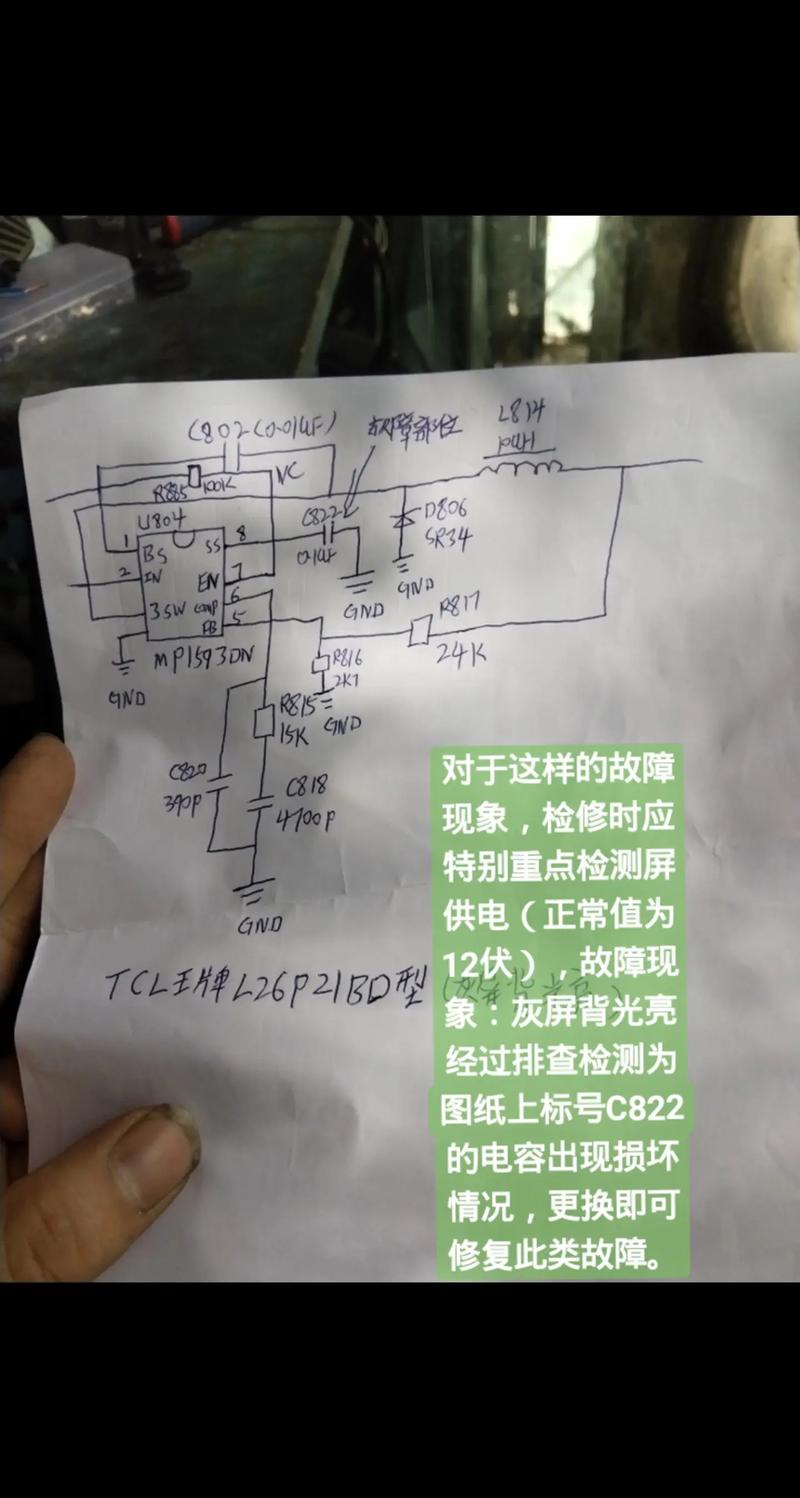 C802(0.01UF)
故障部位
L814
10UH
R885
100K
VC
U804
C822
0.1UF
D806
SR34
1
BS
SS
8
2
IN
EN
7
3SW
COMP
6
FB
5
GND
GND
R817
24K
MP1593DN
GND
R816
2K7
GND
R815
15K
C820
390P
C818
4700P
GND
TCL王牌L26P21BD型
对于这样的故障
现象，检修时应
特别重点检测屏
供电（正常值为
12伏），故障现
象：灰屏背光亮
经过排查检测为
图纸上标号C822
的电容出现损坏
情况，更换即可
修复此类故障。